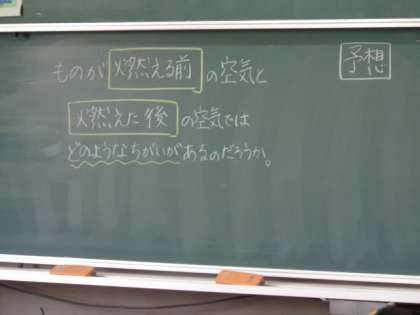 ものが燃える前の空気と
燃えた後の空気では
どのようなちがいがあるのだろうか。
予想